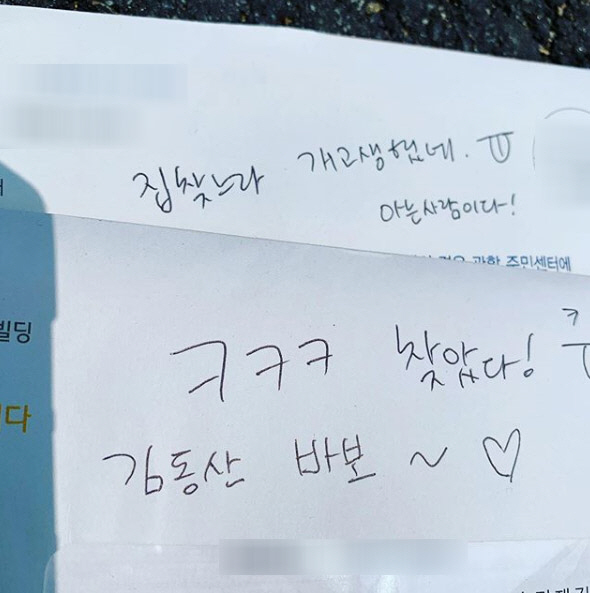 집찾느라 개고생했네. ㅠ
아는사람이다!
관할 주민센터에
빌딩
다
ㅋㅋㅋ 찾았다! ㅋ
김동산 바보 ~ ♡